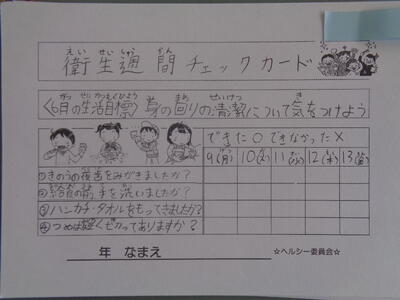 えい せい しゅう かん
衛生週間チェックカード
がつ せい かつもくひょう み まわ せいけつ き
〈6月の生活目標〉身の回りの清潔について気をつけよう
できた○できなかった×
9(月) 10(火) 11(水) 12(木) 13(金)
①きのうの夜歯をみがきましたか?
②給食の前、手を洗いましたか?
③ハンカチ・タオルをもってきましたか?
④つめは短く切ってありますか?
年 なまえ
☆ヘルシー委員会☆